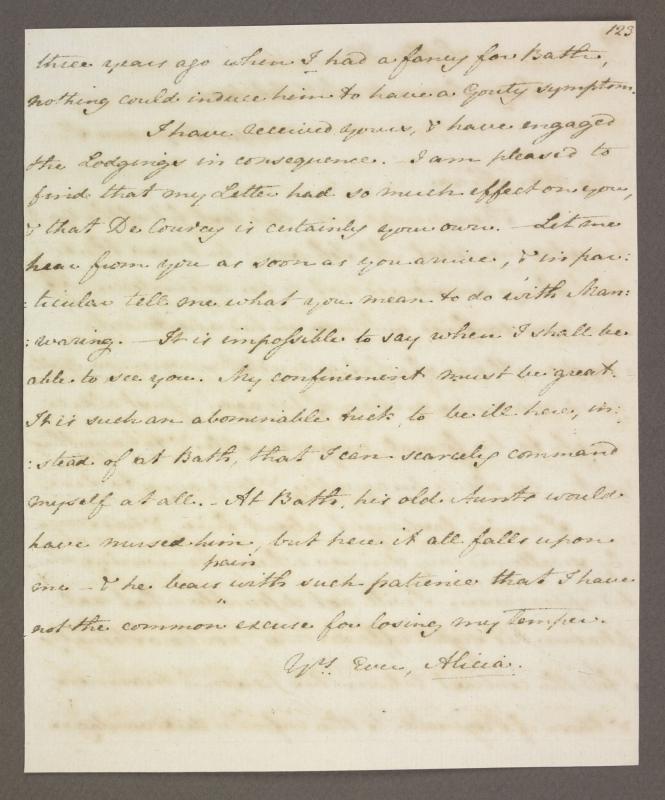 123
three years ago when I had a fancy for Bath,
nothing could induce him to have a Gouty symptom.
I have received yours, & have engaged
the Lodgings in consequence. – I am pleased to
find that my Letter had so much effect on you,
& that De Courcy is certainly your own. – Let me
hear from you as soon as you arrive, & in par:
:ticular tell me what you mean to do with Man:
:waring. – It is impossible to say when I shall be
able to see you. My confinement must be great.
It is such an abominable trick, to be ill here, in:
:stead of at Bath, that I can scarcely command
myself at all. – At Bath, his old Aunts would
have nursed him, but here it all falls upon
pain
me – & he bears with such patience that I have
not the common excuse for losing my Temper.
Yrs. Ever, Alicia.